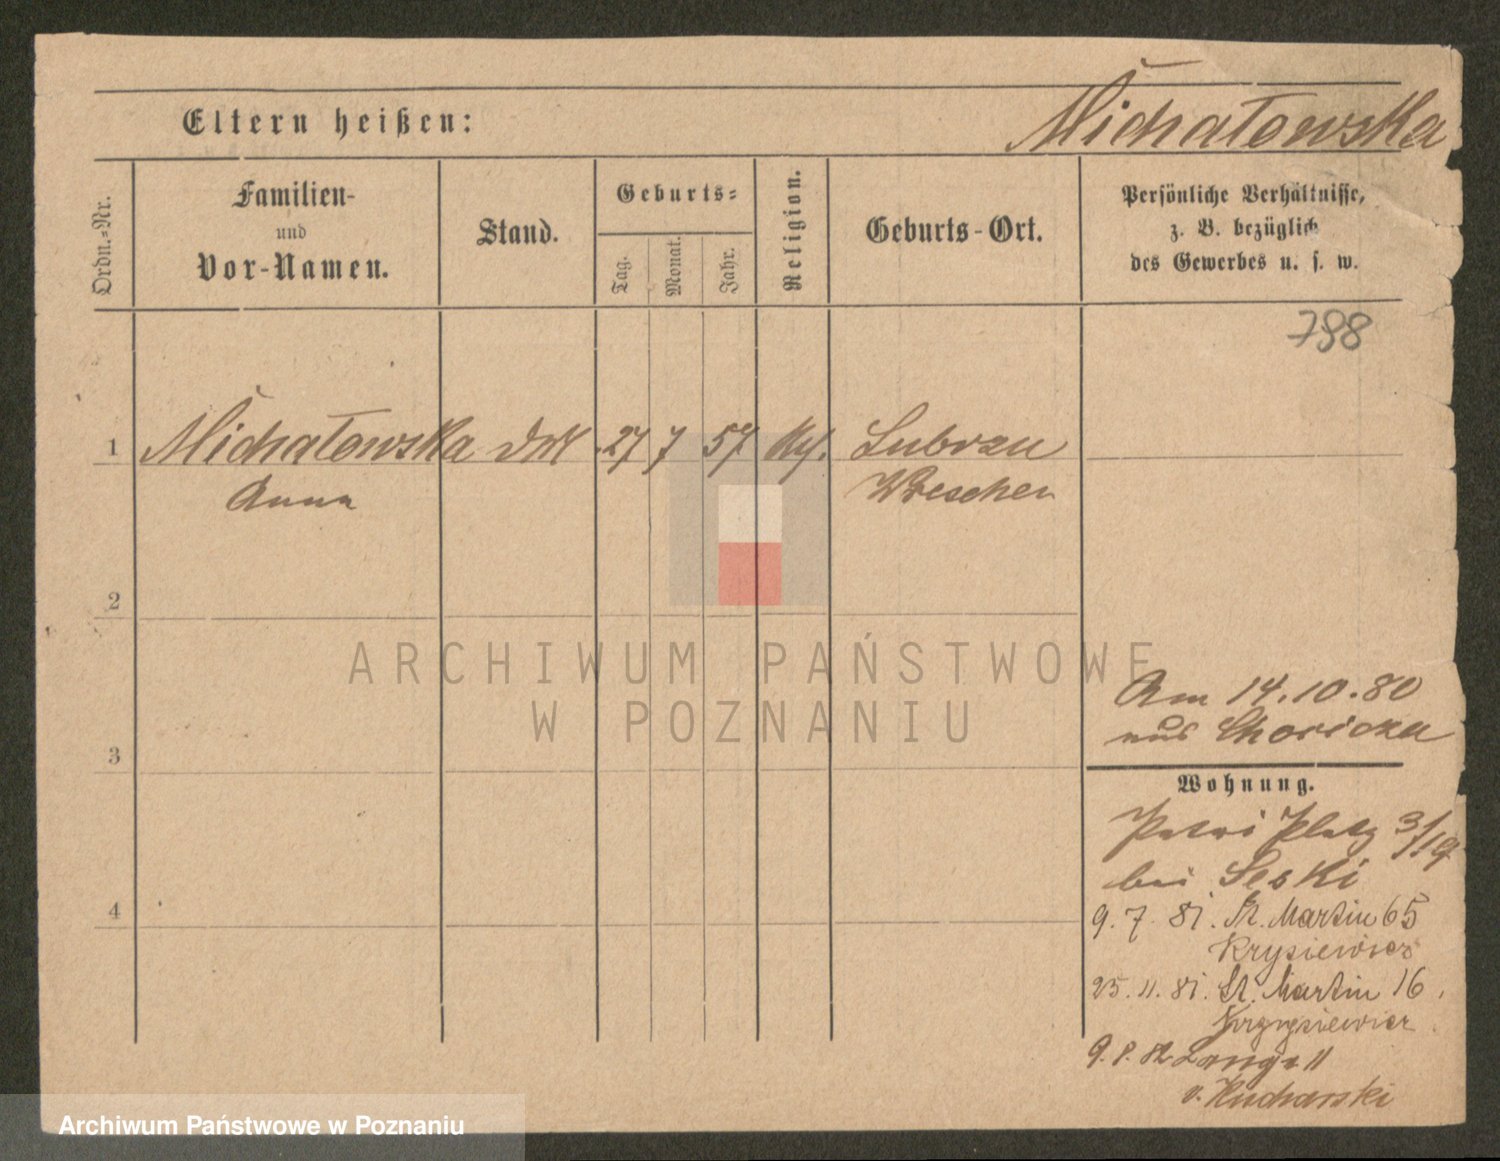 Michałowska
Eltern heißen:
Ordn.-Nr.
Familien-
und
Vor-Namen.
Stand.
Geburts-
Tag.
Monat.
Jahr.
Religion.
Geburts-Ort.
Persönliche Verhältnisse,
z. B. bezüglich
des Gewerbes u. s. w.
798
1 Michałowska 27 7 57 Lubrze
Anna Wreschen
2
3
4
Am 14.10.80
aus
Wohnung.
Petri Platz 3/19
bei Seski
9. 7. 81. St. Martin 65
Krysiewicz
25. 11. 81. St. Martin 16.
Krzysiewicz
9. 8. 82 Lange 11
v. Kucharski
ARCHIWUM PAŃSTWOWE
W POZNANIU
Archiwum Państwowe w Poznaniu